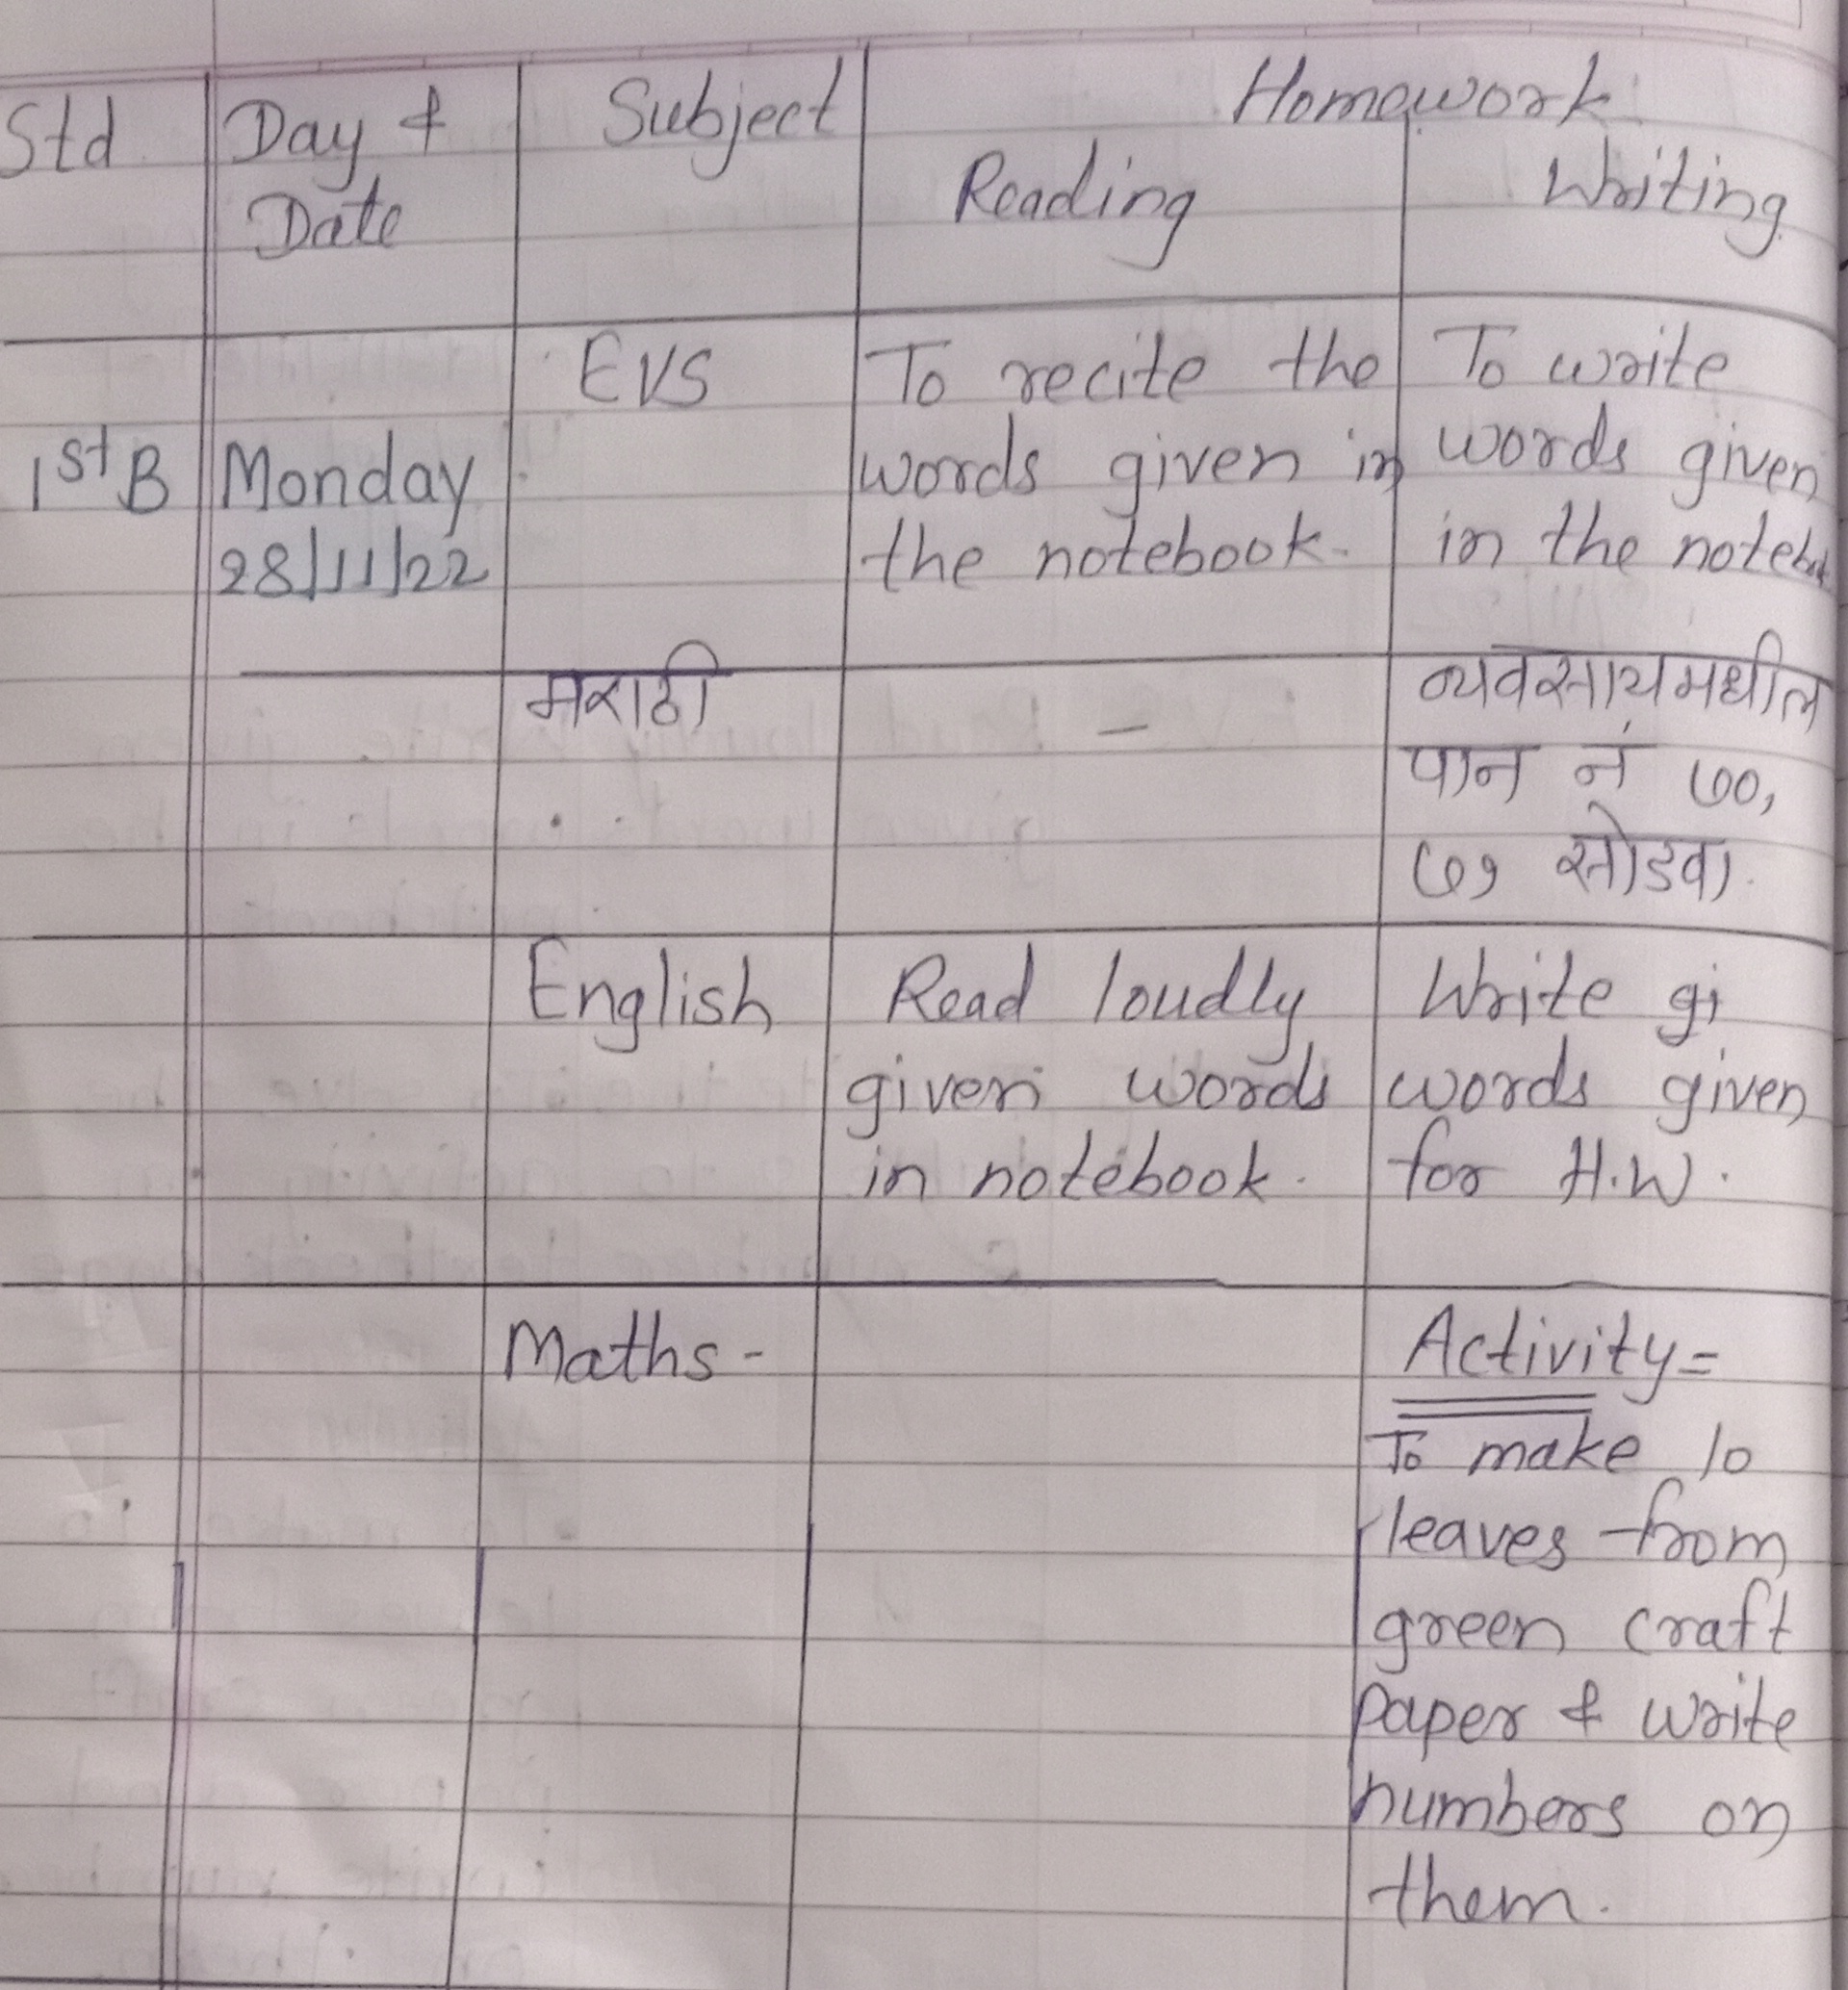 Std Day & Subject Homework
Date Reading Writing
EVS To recite the To write
1st B Monday words given in words given
28/11/22 the notebook. in the notebok
मराठी – व्यवसायमधील
पान नं ७०,
७१ सोडवा.
English Read loudly Write gi
given words words given
in notebook. for H.W.
Maths - Activity =
To make 10
leaves from
green craft
paper & write
numbers on
them.